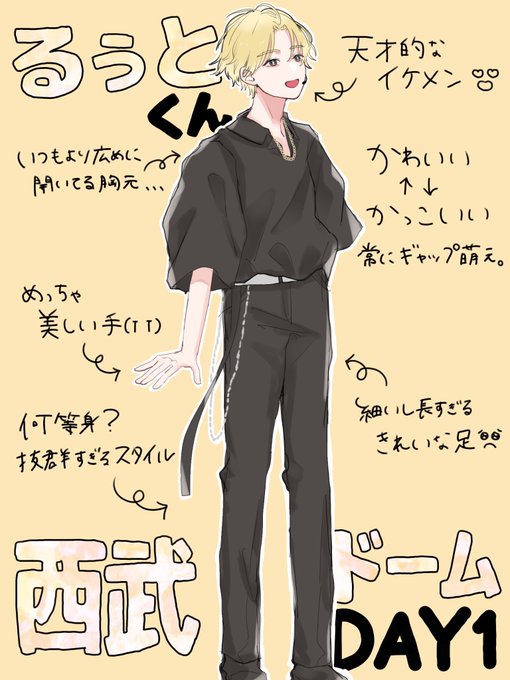 るぅと
くん
天才的な
イケメン
いつもより広めに
開いてる胸元...
かわいい
↑↓
かっこいい
常にギャップ萌え。
めっちゃ
美しい手(TT)
細いし長すぎる
きれいな足
何等身?
抜群すぎるスタイル
西武ドーム
DAY1